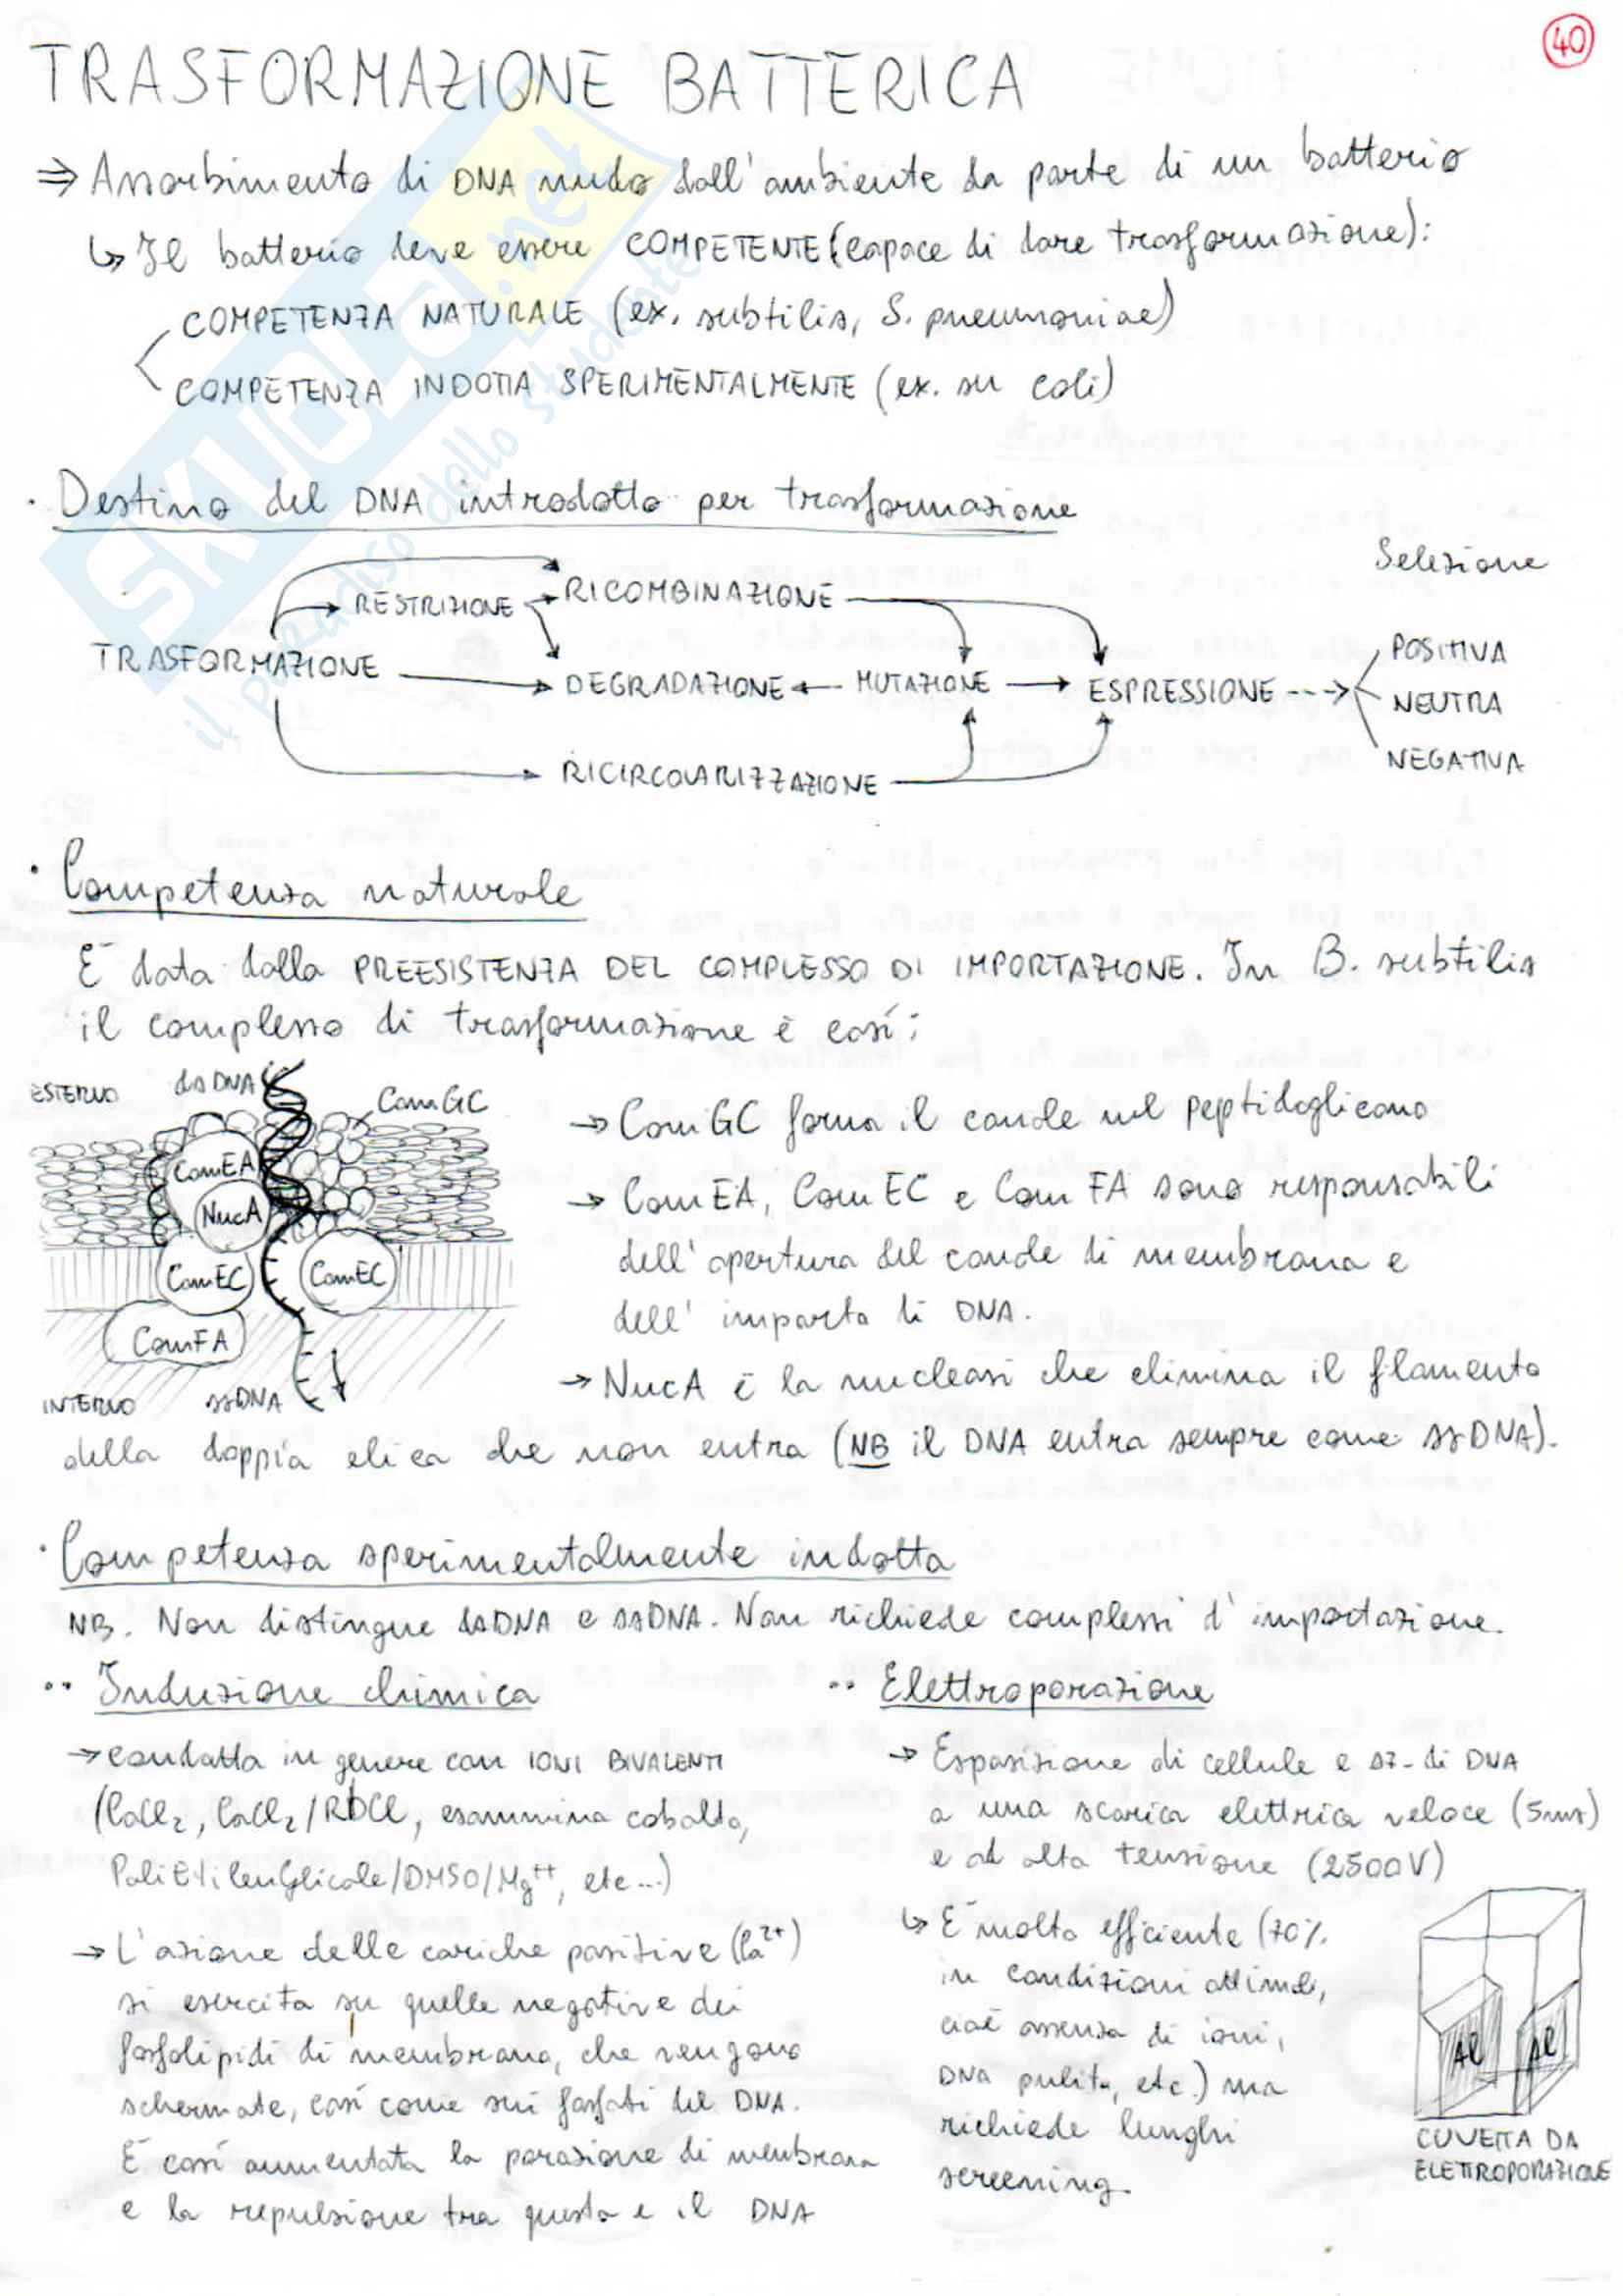 40
TRASFORMAZIONE BATTERICA
⇒ Assorbimento di DNA nudo dall'ambiente da parte di un batterio
↳ Il batterio deve essere COMPETENTE (capace di dare trasformazione):
COMPETENZA NATURALE (ex. subtilis, S. pneumoniae)
COMPETENZA INDOTTA SPERIMENTALMENTE (ex. su coli)
SKUOLA.net
il paradiso dello studente
· Destino del DNA introdotto per trasformazione
Selezione
RESTRIZIONE → RICOMBINAZIONE
TRASFORMAZIONE → DEGRADAZIONE ← MUTAZIONE → ESPRESSIONE --→
POSITIVA
NEUTRA
NEGATIVA
RICIRCOLARIZZAZIONE
· Competenza naturale
È data dalla PREESISTENZA DEL COMPLESSO DI IMPORTAZIONE. In B. subtilis
il complesso di trasformazione è così:
ESTERNO
dsDNA
ComGC
ComEA
NucA
ComEC
ComEC
ComFA
INTERNO
ssDNA
→ ComGC forma il canale nel peptidoglicano
→ ComEA, ComEC e ComFA sono responsabili
dell'apertura del canale di membrana e
dell'importo di DNA.
→ NucA è la nucleasi che elimina il filamento
della doppia elica che non entra (NB il DNA entra sempre come ssDNA).
· Competenza sperimentalmente indotta
NB. Non distingue dsDNA e ssDNA. Non richiede complessi d'importazione.
·· Induzione chimica
→ condotta in genere con IONI BIVALENTI
(CaCl2, CaCl2/RbCl, esammina cobalto,
PoliEtilenGlicole/DMSO/Mg++, etc...)
→ L'azione delle cariche positive (Ca2+)
si esercita su quelle negative dei
fosfolipidi di membrana, che vengono
schermate, così come sui fosfati del DNA.
È così aumentata la porazione di membrana
e la repulsione tra questa e il DNA
·· Elettroporazione
→ Esposizione di cellule e sz. di DNA
a una scarica elettrica veloce (5ms)
e ad alta tensione (2500V)
↳ È molto efficiente (70%
in condizioni ottimali,
cioè assenza di ioni,
DNA pulito, etc.) ma
richiede lunghi
screening.
Al
Al
CUVETTA DA
ELETTROPORAZIONE